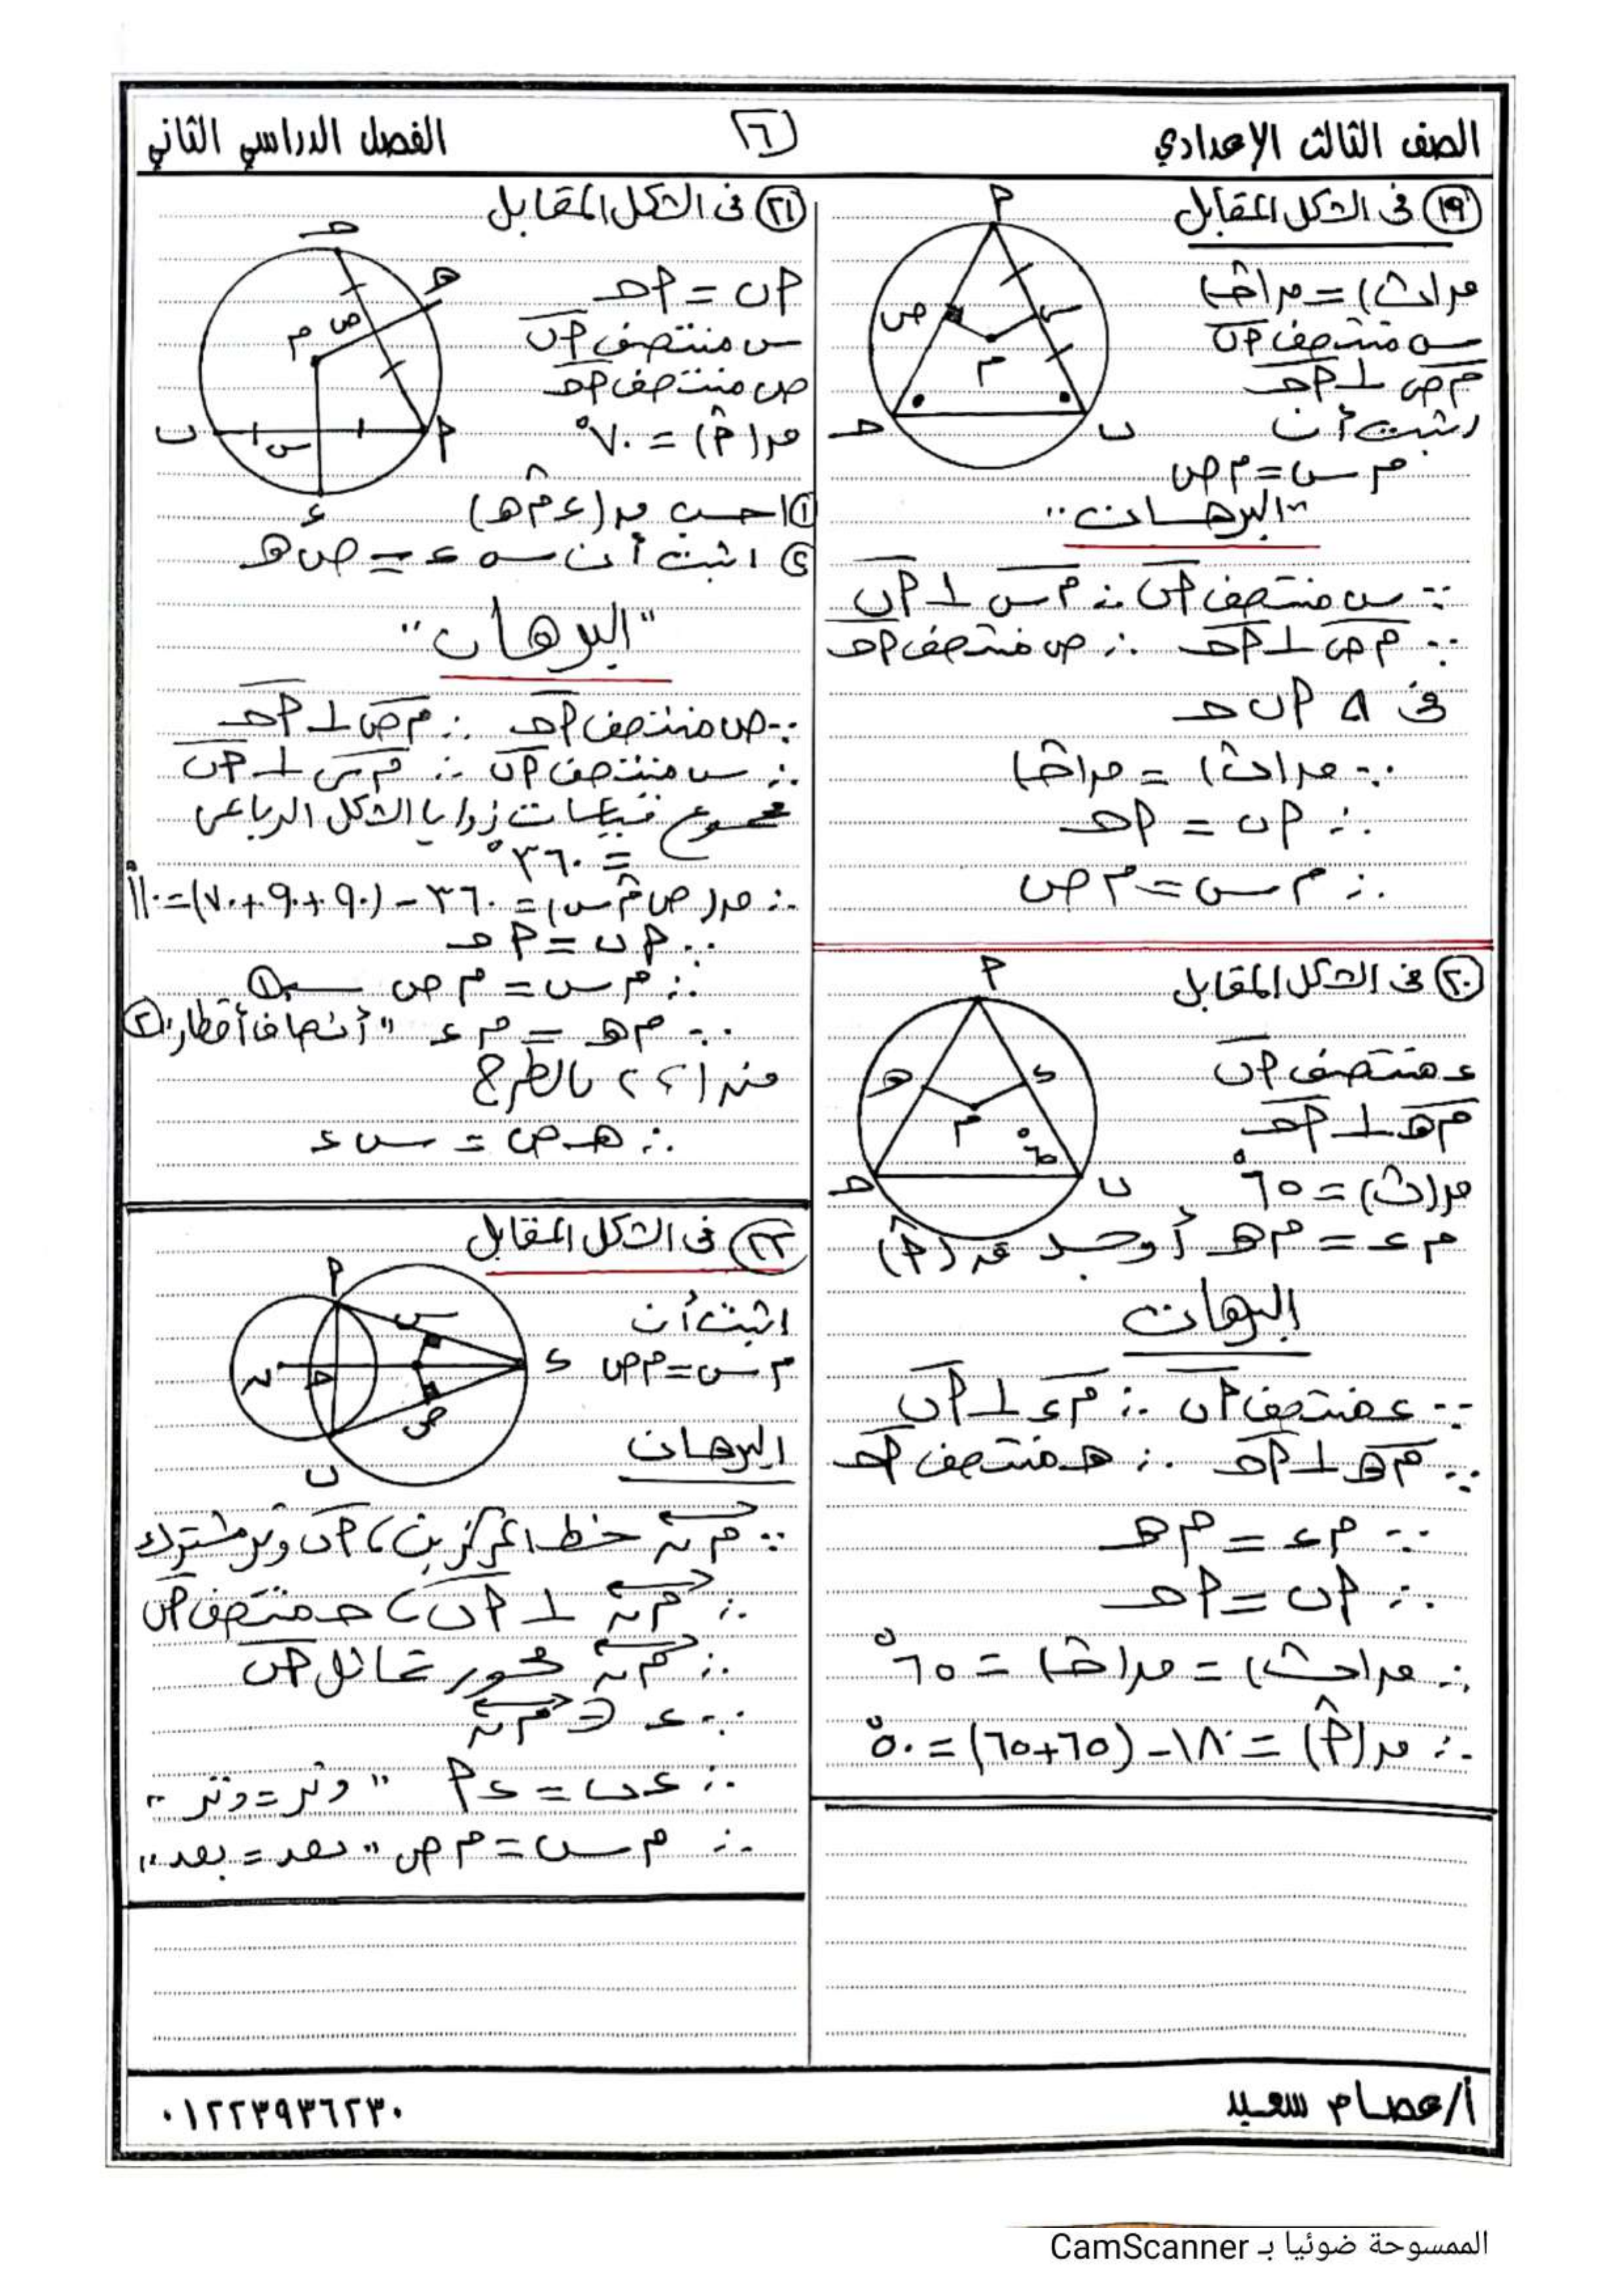 الصف الثالث الإعدادي
٦
الفصل الدراسي الثاني
١٩ فى الشكل المقابل
ق(ب̂) = ق(حـ̂)
س منتصف اب
م ص ⊥ احـ
اثبت أن
م س = م ص
ا
ص
س
م
حـ
ب
"البرهان"
∵ س منتصف اب ∴ م س ⊥ اب
∵ م ص ⊥ احـ ∴ ص منتصف احـ
فى Δ ا ب حـ
∵ ق(ب̂) = ق(حـ̂)
∴ اب = احـ
∴ م س = م ص
٢٠ فى الشكل المقابل
ء منتصف اب
م هـ ⊥ احـ
ق(ب̂) = ٦٥°
م ء = م هـ أوجد ق(ا̂)
ا
هـ
ء
م
٦٥°
حـ
ب
البرهان
∵ ء منتصف اب ∴ م ء ⊥ اب
∵ م هـ ⊥ احـ ∴ هـ منتصف احـ
∵ م ء = م هـ
∴ اب = احـ
∴ ق(ب̂) = ق(حـ̂) = ٦٥°
∴ ق(ا̂) = ١٨٠ - (٦٥+٦٥) = ٥٠°
٢١ فى الشكل المقابل
اب = احـ
س منتصف اب
ص منتصف احـ
ق(ا̂) = ٧٠°
حـ
هـ
ص
م
ب
س
ا
ء
١ احسب ق(ء م̂ هـ)
٢ اثبت أن س ء = ص هـ
"البرهان"
∵ ص منتصف احـ ∴ م ص ⊥ احـ
∴ س منتصف اب ∴ م س ⊥ اب
مجموع قياسات زوايا الشكل الرباعى
= ٣٦٠°
∴ ق(ص م̂ س) = ٣٦٠ - (٩٠+٩٠+٧٠) = ١١٠°
∵ اب = احـ
∴ م س = م ص ١
∵ م هـ = م ء "أنصاف أقطار" ٢
من ١، ٢ بالطرح
∴ هـ ص = س ء
٢٢ فى الشكل المقابل
اثبت أن
م س = م ص
ا
س
ء
ن
حـ
ص
ب
البرهان
∵ م ن خط المركزين، اب وتر مشترك
∴ م ن ⊥ اب، حـ منتصف اب
∴ م ن محور تماثل اب
∵ ء ∈ م ن
∴ ء ب = ء ا "وتر = وتر"
∴ م س = م ص "بعد = بعد"
أ/عصام سعيد
٠١٢٢٣٩٣٦٢٣٠
الممسوحة ضوئيا بـ CamScanner